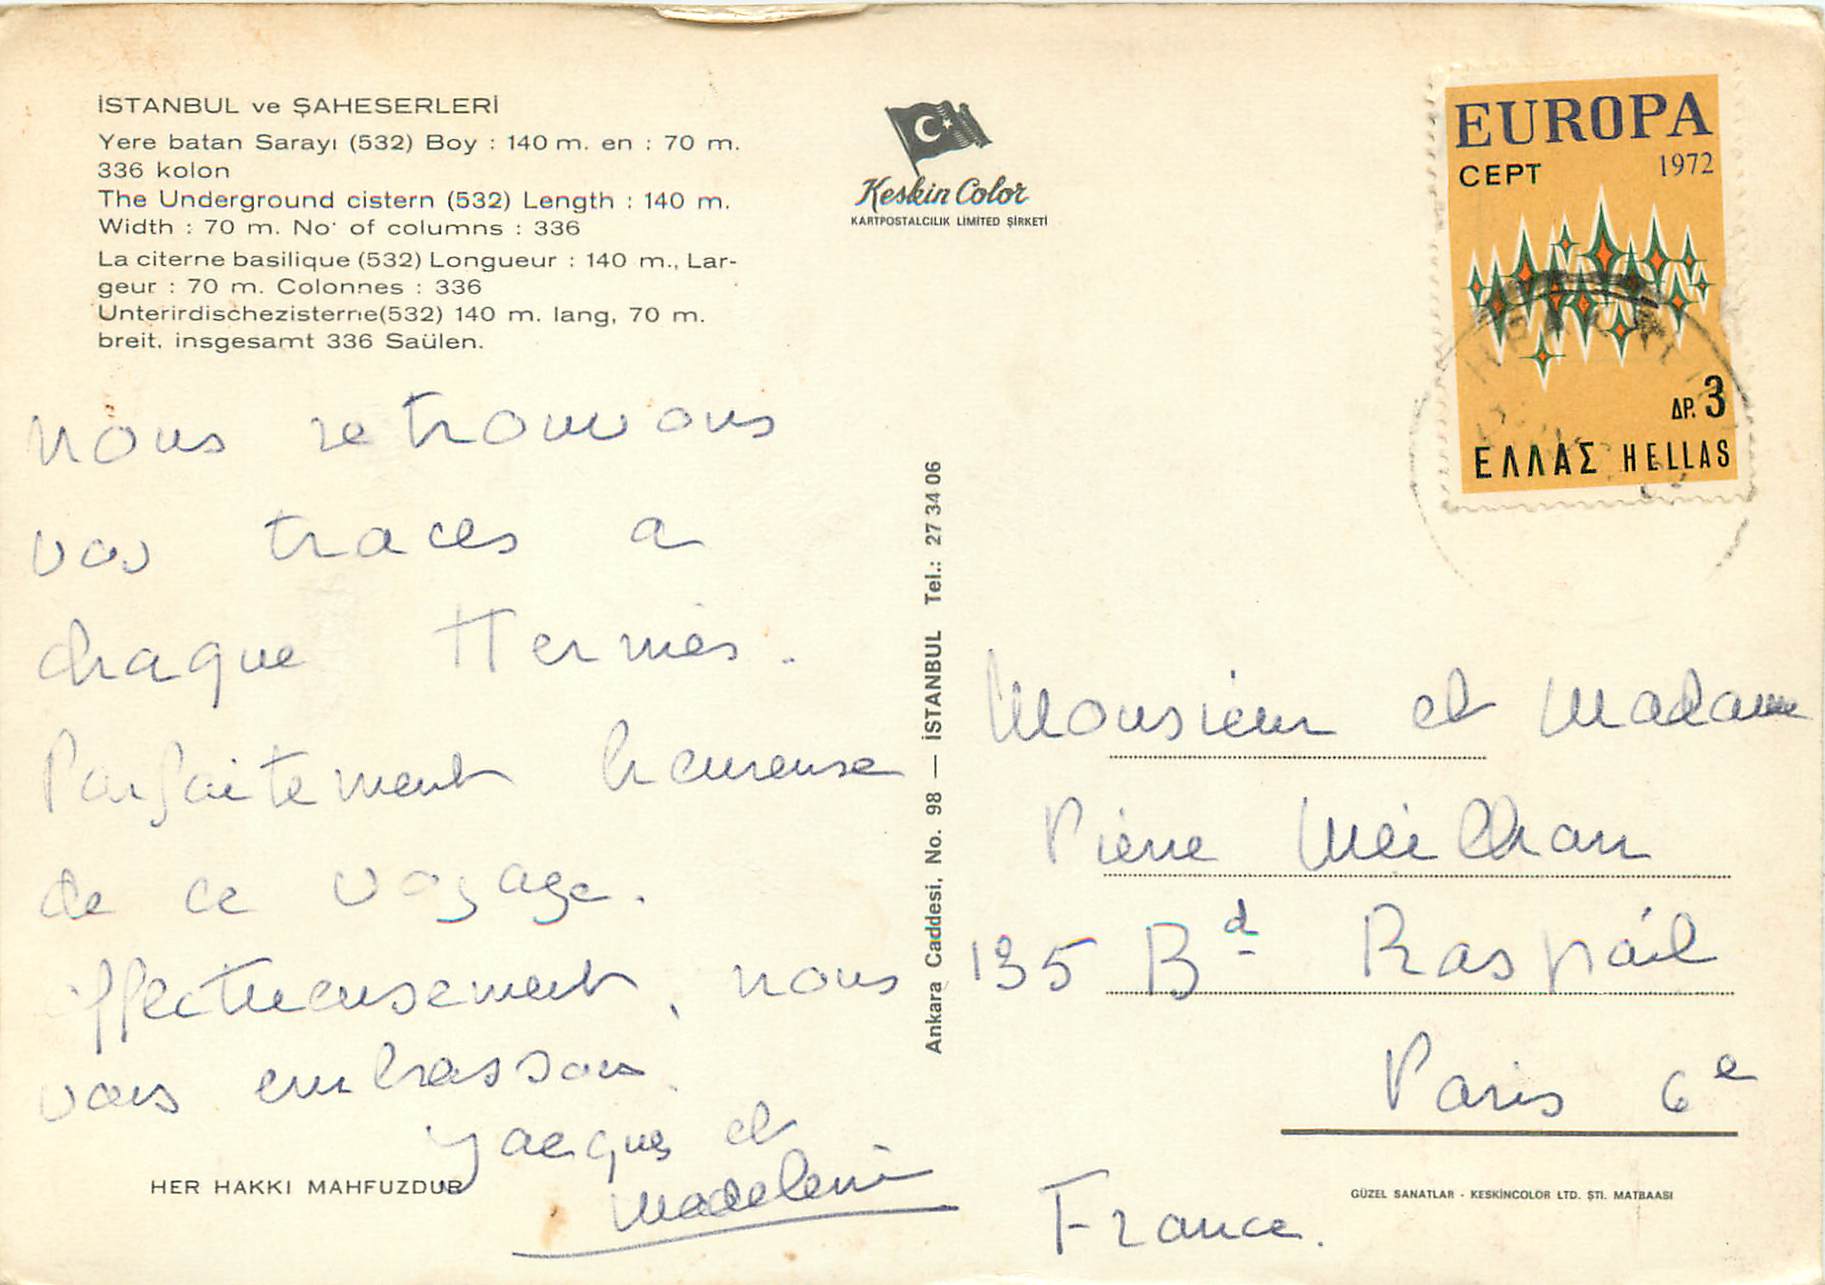 İSTANBUL ve ŞAHESERLERİ
Yere batan Sarayı (532) Boy : 140 m. en : 70 m.
336 kolon
The Underground cistern (532) Length : 140 m.
Width : 70 m. No· of columns : 336
La citerne basilique (532) Longueur : 140 m., Lar-
geur : 70 m. Colonnes : 336
Unterirdischezisterne(532) 140 m. lang, 70 m.
breit. insgesamt 336 Saülen.
nous retrouvons
vos traces a
chaque Hermès.
Parfaitement heureuse
de ce voyage.
affectueusement, nous
vous embrassons.
Jacques et
Madeleine
HER HAKKI MAHFUZDUR
Keskin Color
KARTPOSTALCILIK LIMITED ŞİRKETİ
Ankara Caddesi, No. 98 — İSTANBUL Tel.: 27 34 06
EUROPA
CEPT 1972
ΔΡ. 3
ΕΛΛΑΣ HELLAS
Monsieur et Madame
Pierre Meilhan
135 Bd Raspail
Paris 6e
France.
GÜZEL SANATLAR - KESKİNCOLOR LTD. ŞTI. MATBAASI